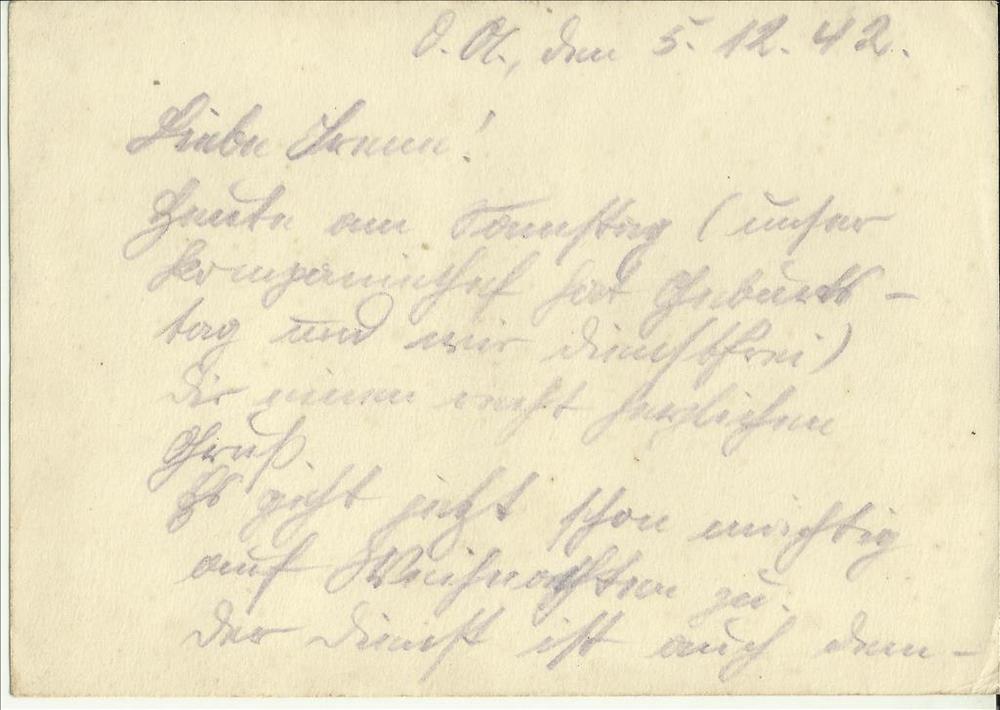 O. U., den 5. 12. 42.
Liebe Irene!
Heute am Samstag (unser
Kompaniechef hat Geburts-
tag und wir dienstfrei)
Dir einen recht herzlichen
Gruß.
Es geht jetzt schon mächtig
auf Weihnachten zu.
Der Dienst ist auch dem-